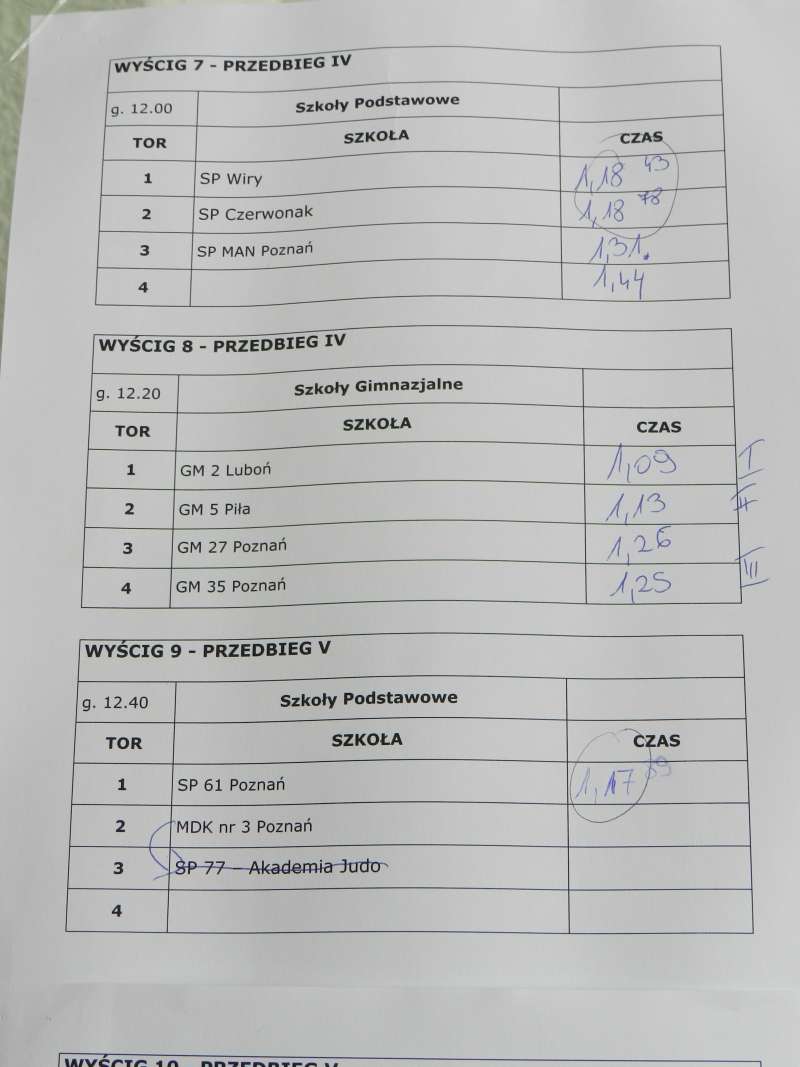 WYŚCIG 7 - PRZEDBIEG IV
g. 12.00 Szkoły Podstawowe
TOR SZKOŁA CZAS
1 SP Wiry 1,18 43
2 SP Czerwonak 1,18 78
3 SP MAN Poznań 1,31.
4 1,44
WYŚCIG 8 - PRZEDBIEG IV
g. 12.20 Szkoły Gimnazjalne
TOR SZKOŁA CZAS
1 GM 2 Luboń 1,09 I
2 GM 5 Piła 1,13 II
3 GM 27 Poznań 1,26
4 GM 35 Poznań 1,25 III
WYŚCIG 9 - PRZEDBIEG V
g. 12.40 Szkoły Podstawowe
TOR SZKOŁA CZAS
1 SP 61 Poznań 1,17
2 MDK nr 3 Poznań
3 SP 77 – Akademia Judo
4
WYŚCIG 10 - PRZEDBIEG V